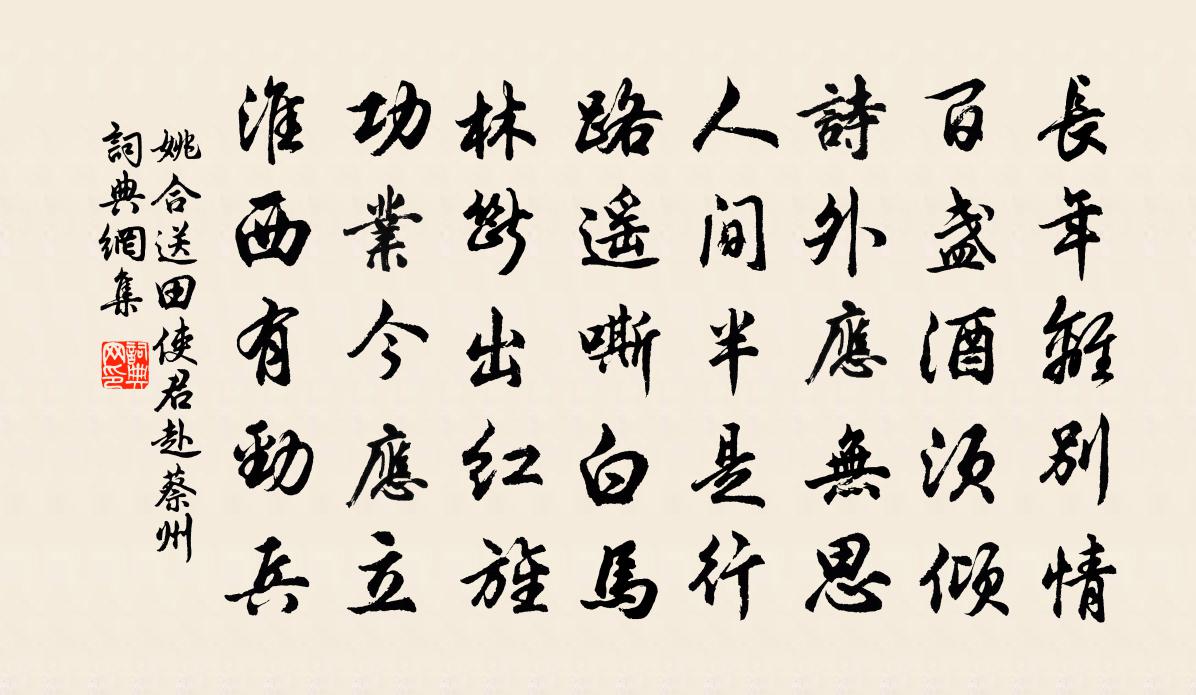 長年離別情
百盞酒須傾
詩外應無思
人間半是行
路遥嘶白馬
林斷出紅旌
功業今應立
淮西有勁兵
姚合送田使君赴蔡州
詞典網集
詞典
网印